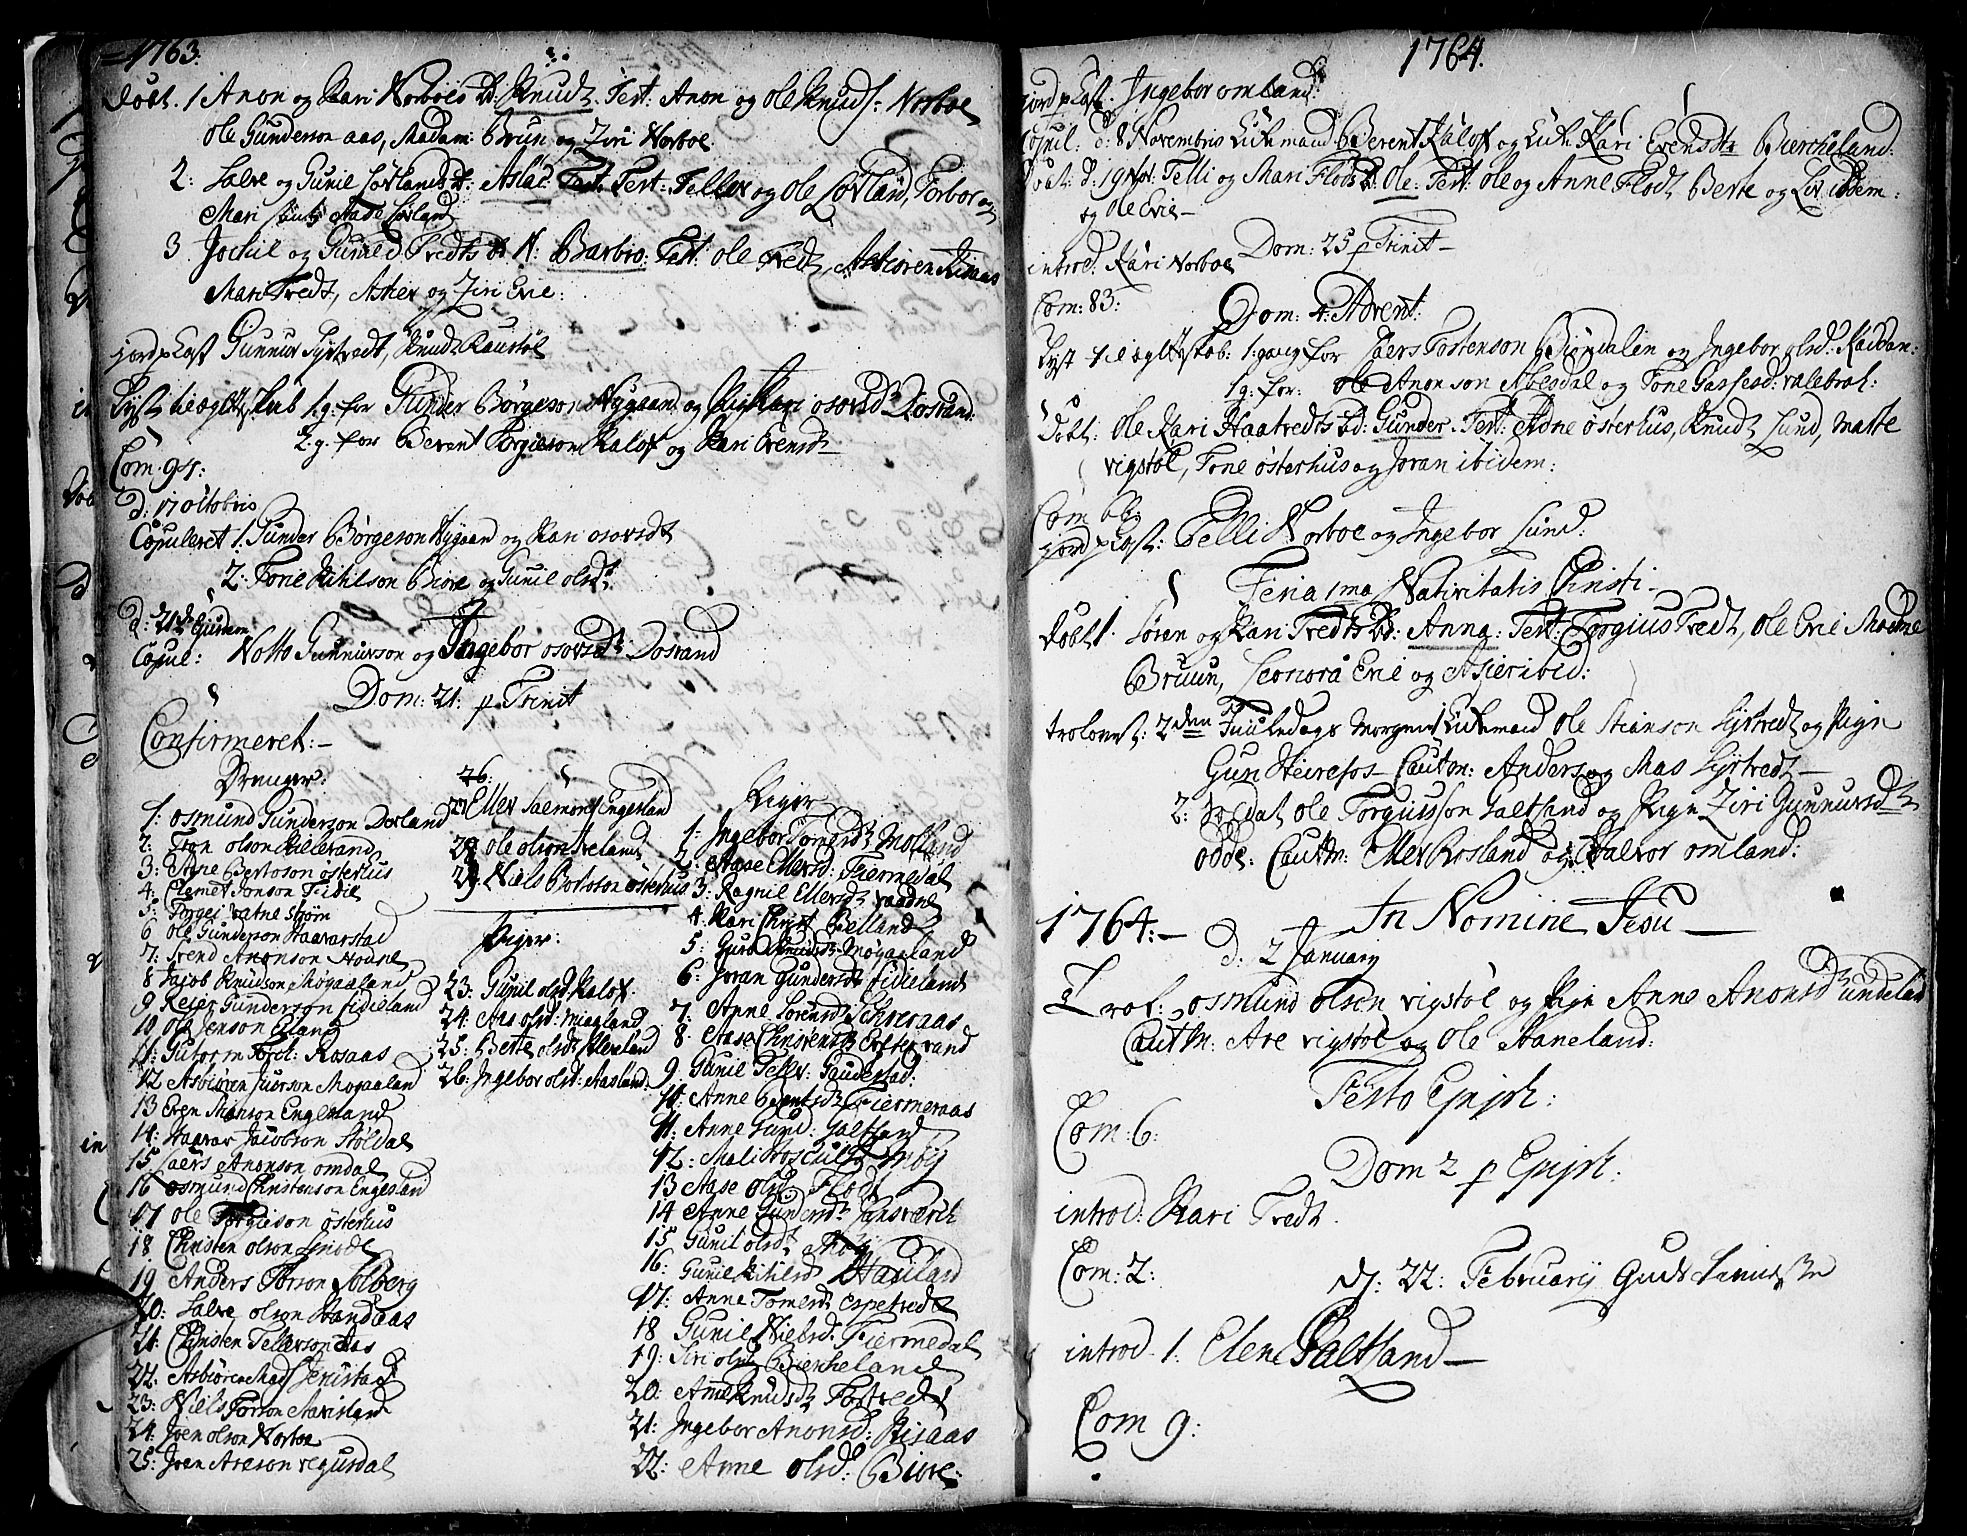 1763.
Døbt. 1 Anon og Kari Norboes b: Knud. Test: Anon og Ole Knuds: Norboe
Ole Gunderson aas, Madam: Brun og Ziri Norboe
2: Salve og Gunil Løvlands b: Aslac Test: Teller og Ole Løvland, Torbor og
Mari Aase Løvland
3 Jochil og Gunild Tredts b: N: Barbro: Test: Ole Tredt, Asbiøren Risaas
Mari Tredt, Asher og Ziri Erie:
jordpkast Gunnur Syrtredt, Knud Raustøl
Lyst til ægteskab 1.g: for Gunder Børgeson Nygaard og Pig Kari osovsd Dosrand:
2.g. for Berent Torgieson Kalof og Kari Evensdt
Com. 94:
d: 17 octobris
Copuleret 1. Gunder Børgeson Nygaard og Kari osovsdt
2: Torie Kihlson Biore og Gunil olsdt
d: 21de Ejusdem
Copul: Notto Gunnurson og Ingebor osovsdt Dosrand
Dom: 21. p. Trinit
Confirmeret:
Drenger:
1: osmund Gunderson Derland
2: Tron olson Rillerand
3: Adne Bertoson østerhus
4: Clemet Jonson Fidie
5: Torgei vatne strøm
6 Ole Gunderson Haavarstad
7: Trend Anonson Hodne
8 Jacob Knudson Møgaaland
9 Reier Gunderson Fidieland
10 Ole Jenson Eland
11: Gutorm Torcl: Rosaas
12 Asbiøren Juerson Mogaaland
13 Even Monson Engesland
14: Haavar Jacobson Støldal
15 Laers Anonson omdal
16 osmund Christenson Engesland
17 Ole Torgieson østerhus
18 Christen olson
19 Anders Torson Solberg
20: Salve olson Handaas
21: Christen Tellerson Aas
22: Asbiøren Jenistad
23: Niels Torson Stavisland
24: Joen olson Norboe
25: Jven Areson vegusdal
26:
27 Eller Salmons Engesland
28 Ole olson Ireland
29: Niels Bertoson østerhus
Piger:
23: Gunil olsd: Kalof.
24: Aas olsd: Miogland
25: Berte olsd: Kleveland
26: Ingebor olsd: Aasland:
Piger
1: Ingebor Tomesd: Molland
2: Aase Ellersd: Fiermedal
3: Ragnil Ellersd: vaadne
4: Kari Christ: Belland
5: Guro Knudsd: Møgaaland
6: Joran Gundersd: Fidieland
7: Anne Sørensd Schreraas
8 Aase Christensd Eftevand
9: Gunil Teller: Gaudestad:
10: Anne Berntsd: Fiermeraas
11: Anne Gund: Galteland
12: Mali Hoschulsd
13 Aase olsd: Flodt
14 Anne Gundersdt
15: Gunil olsdt
16: Gunil Kihlsd Hauland
17: Anne Tomesd: Espetredt
18 Gunil Nielsd: Fiermedal
19: Siri olsd: Bierkeland
20: Anne Knudsd: Tostredt
21: Ingebor Anonsd: Risaas
22: Anne olsd: Biore:
1764.
jordpkast. Ingebor omland
Copul: d: 8 Novembris Enkemand Berent Kalof og Enk: Kari Evensdtr Biercheland:
Døbt: d. 19 Nov: Telli og Mari Flods b: Ole: Test: Ole og Anne Flodt Berte og Liv ibidem:
og Ole Erie
Dom: 25 p Trinit
introd: Kari Norboe
Com: 83:
Dom: 1. Advent:
Lyst til ægteskab: 1.gang for Laers Tostenson Biøndalen og Ingebor olsd: Raddan:
1g: for: Ole Anonson Abesdal og Tone Gassesd: valebroh:
Døbt: Ole Kari Haatredts b: Gunder. Test: Adne østerhus, Knud Lund, Matte
vigstøl, Tone østerhus og Joran ibidem:
Com 66:
jordpkast: Telli Norboe og Ingebor Lund:
Feria 1ma Nativitatis Christi
Døbt 1. Søren og Kari Tredts b: Anna: Test: Torgius Tredt, Ole Erie Madme
Bruun, Leonora Erie og Asier ibid:
trolovet: 2den Juuledags Morgen Enkemand Ole Stianson Syrtredt og Pign
Guri Heirefos Cautn: Anders og Mas Syrtredt
2: Soldat Ole Torguisson Galteland og Pign Ziri Gunnursdtr
odde: Cautn: Eller Rosland og Halvor omland:
1764: In Nomine Jesu
d: 2 January
Trol: osmund olsen vigstøl og Pign Anne Anonsd undeland
Cautn: Are vigstøl og Ole Haneland:
Festo Epiph:
Com: 6:
Dom 2 p Epiph:
introd: Kari Tredt.
Com: 2:
d: 22: February Guds
introd. 1. Elene Galteland
Com 9: